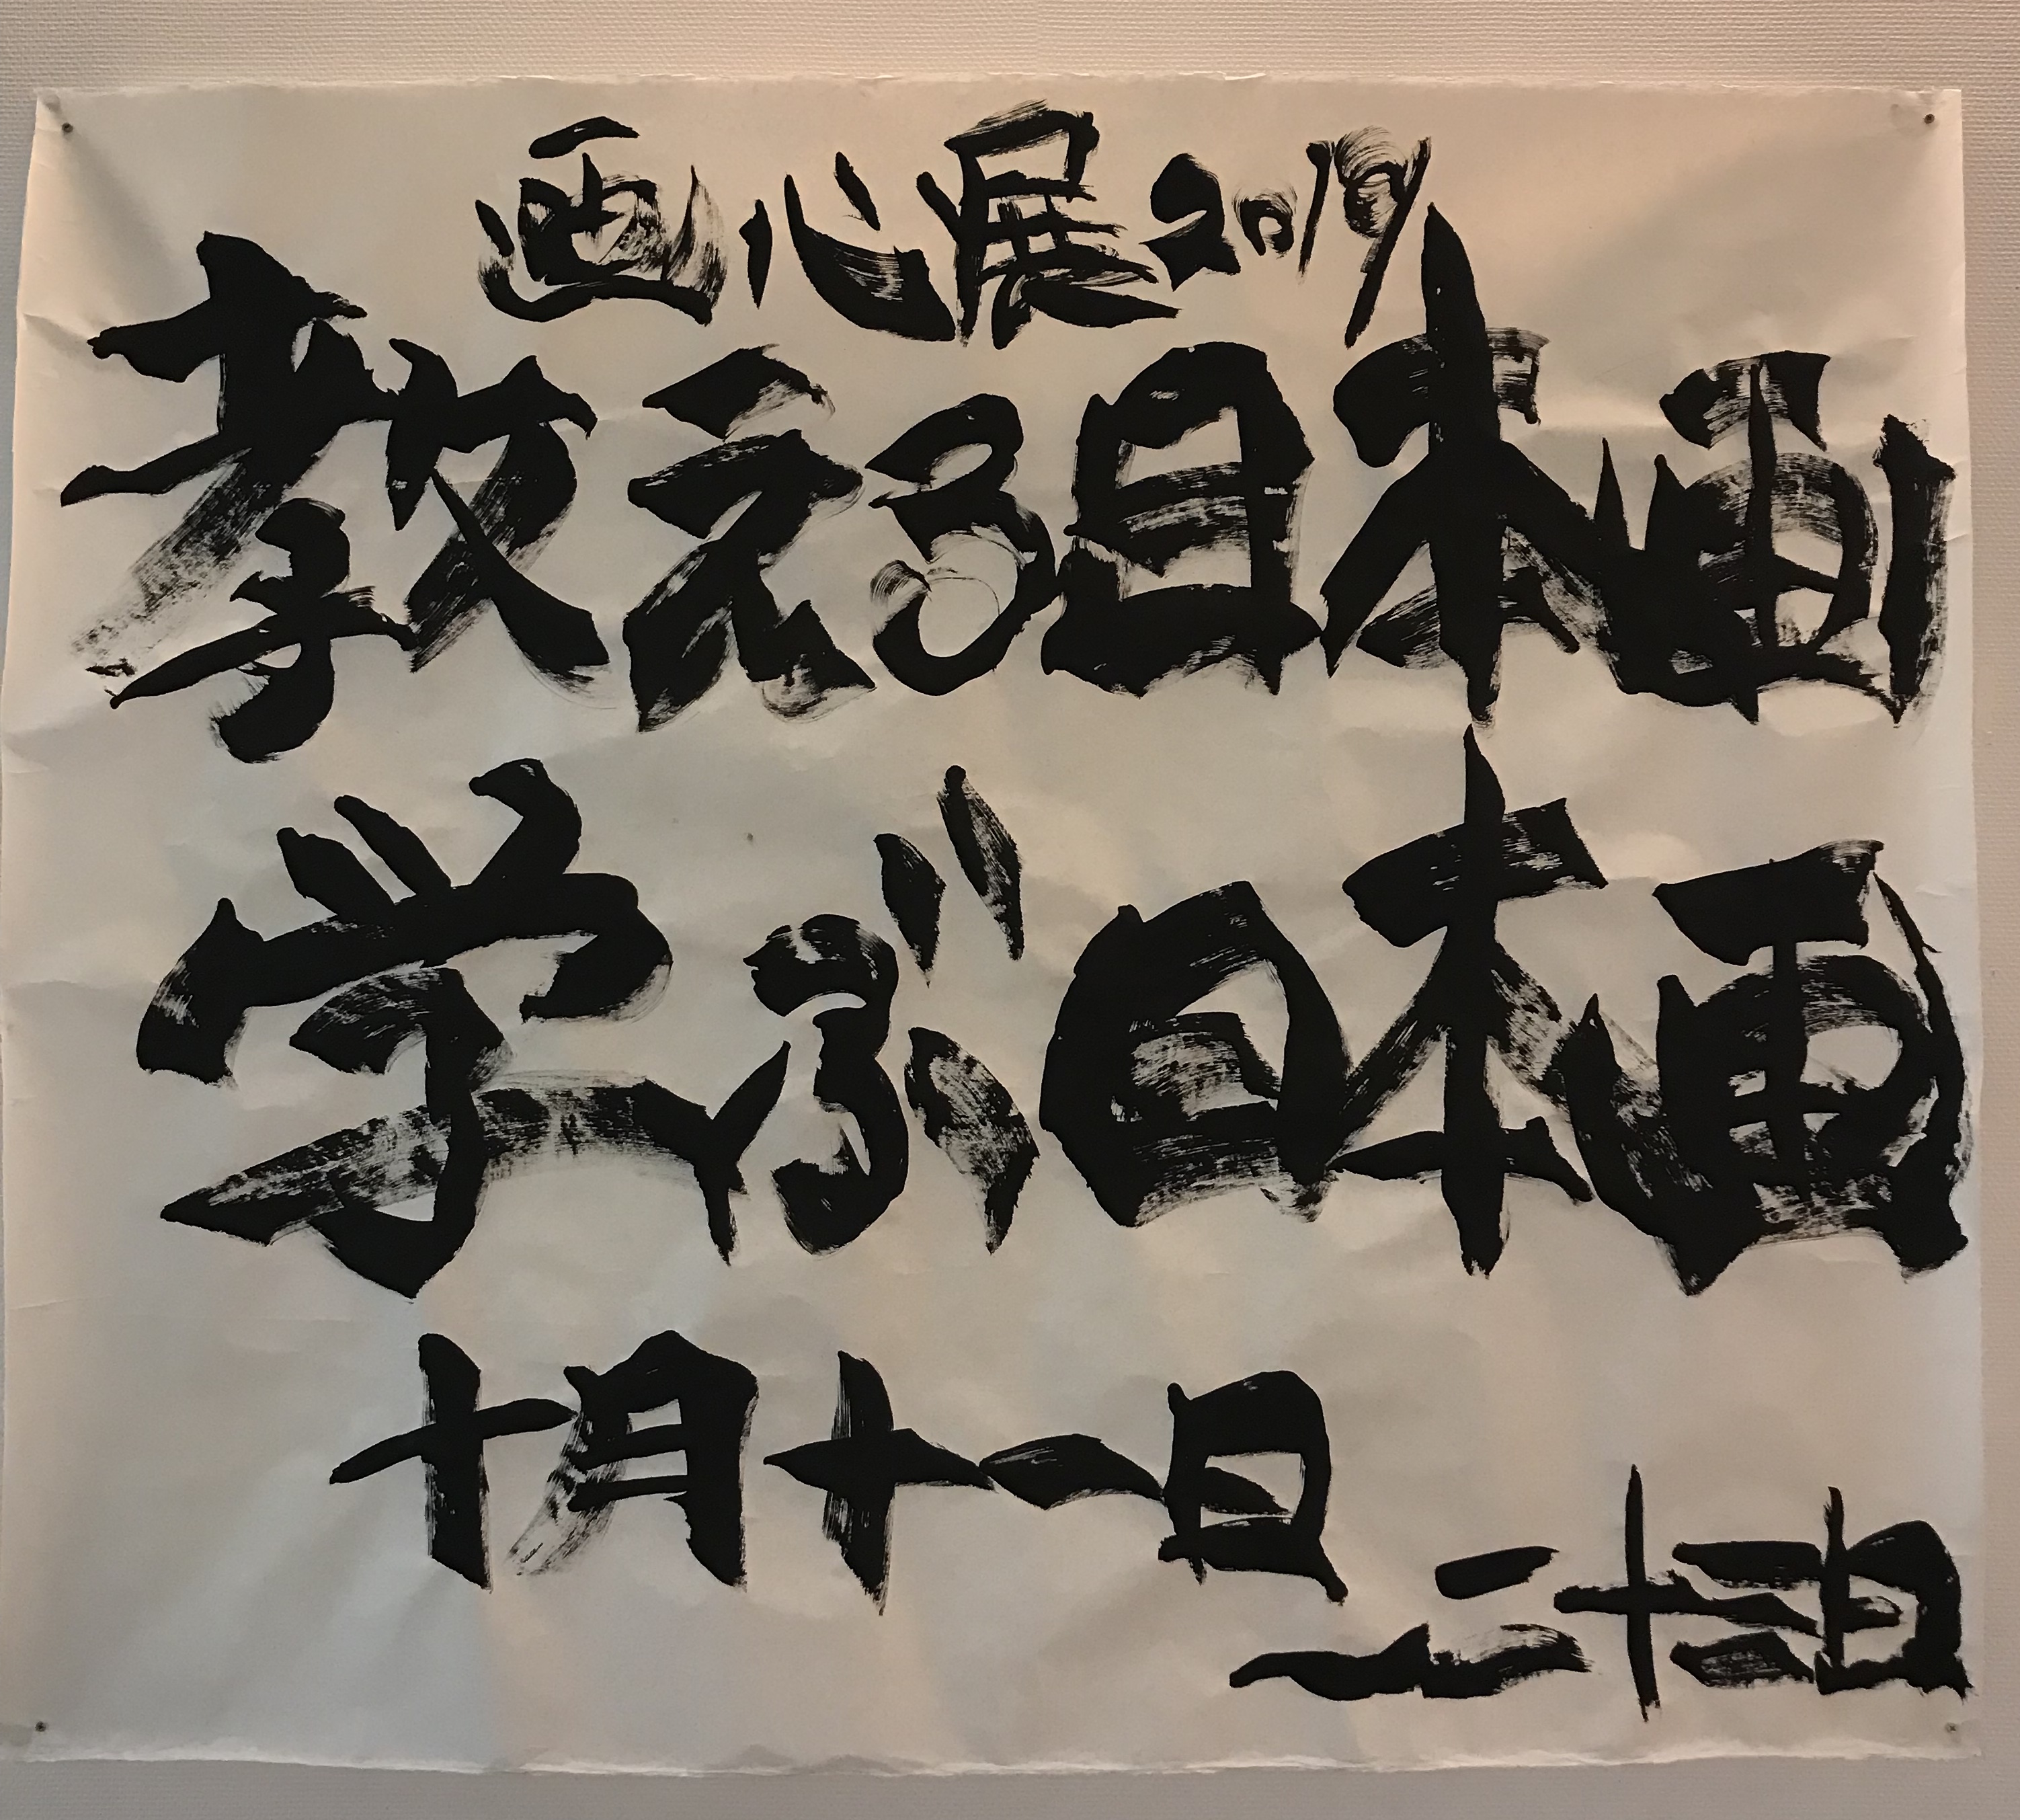 画心展2019
教える日本画
学ぶ日本画
十月十一日
一二十三日